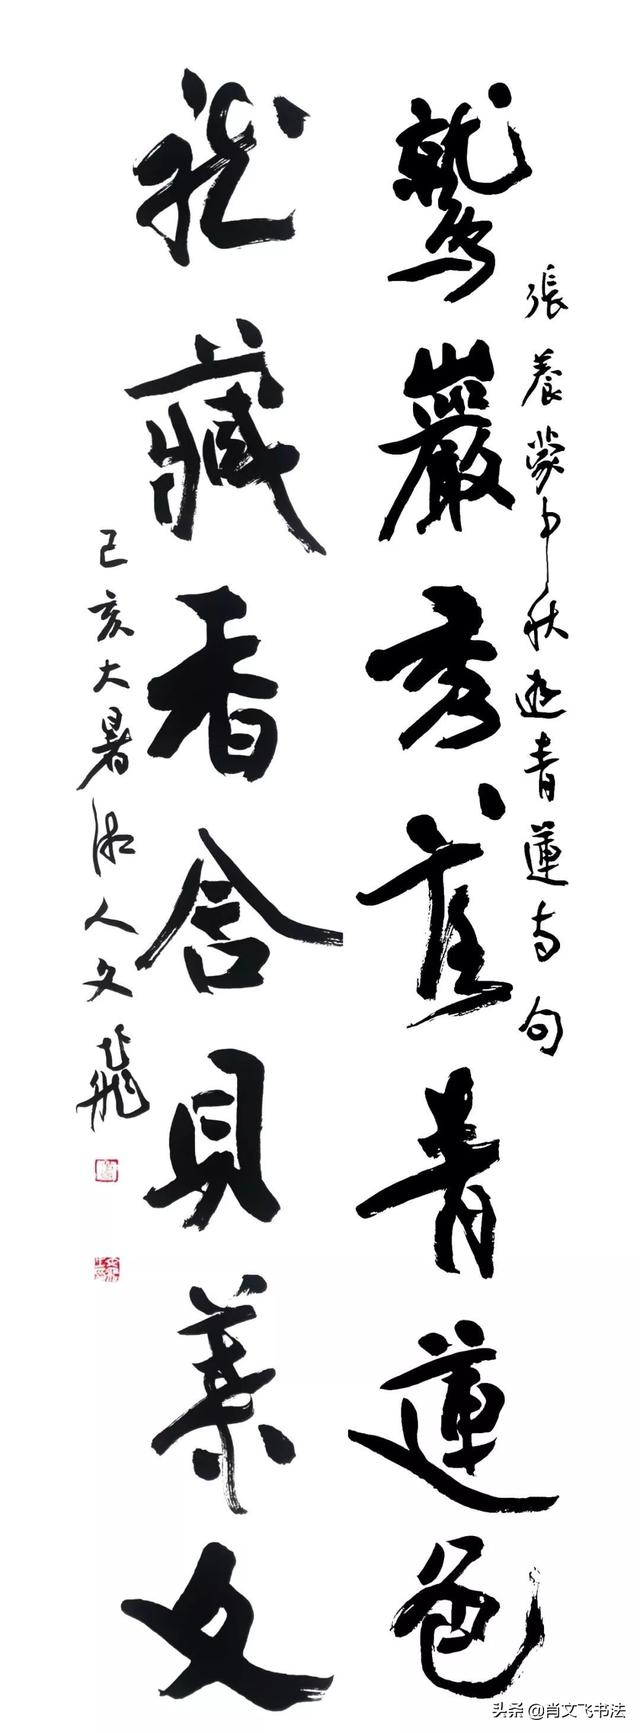 張養蒙中秋遊青蓮寺句
鷲巖秀青蓮色
龍藏香含貝葉文
己亥大暑湘人文飛
头条 @肖文飞书法